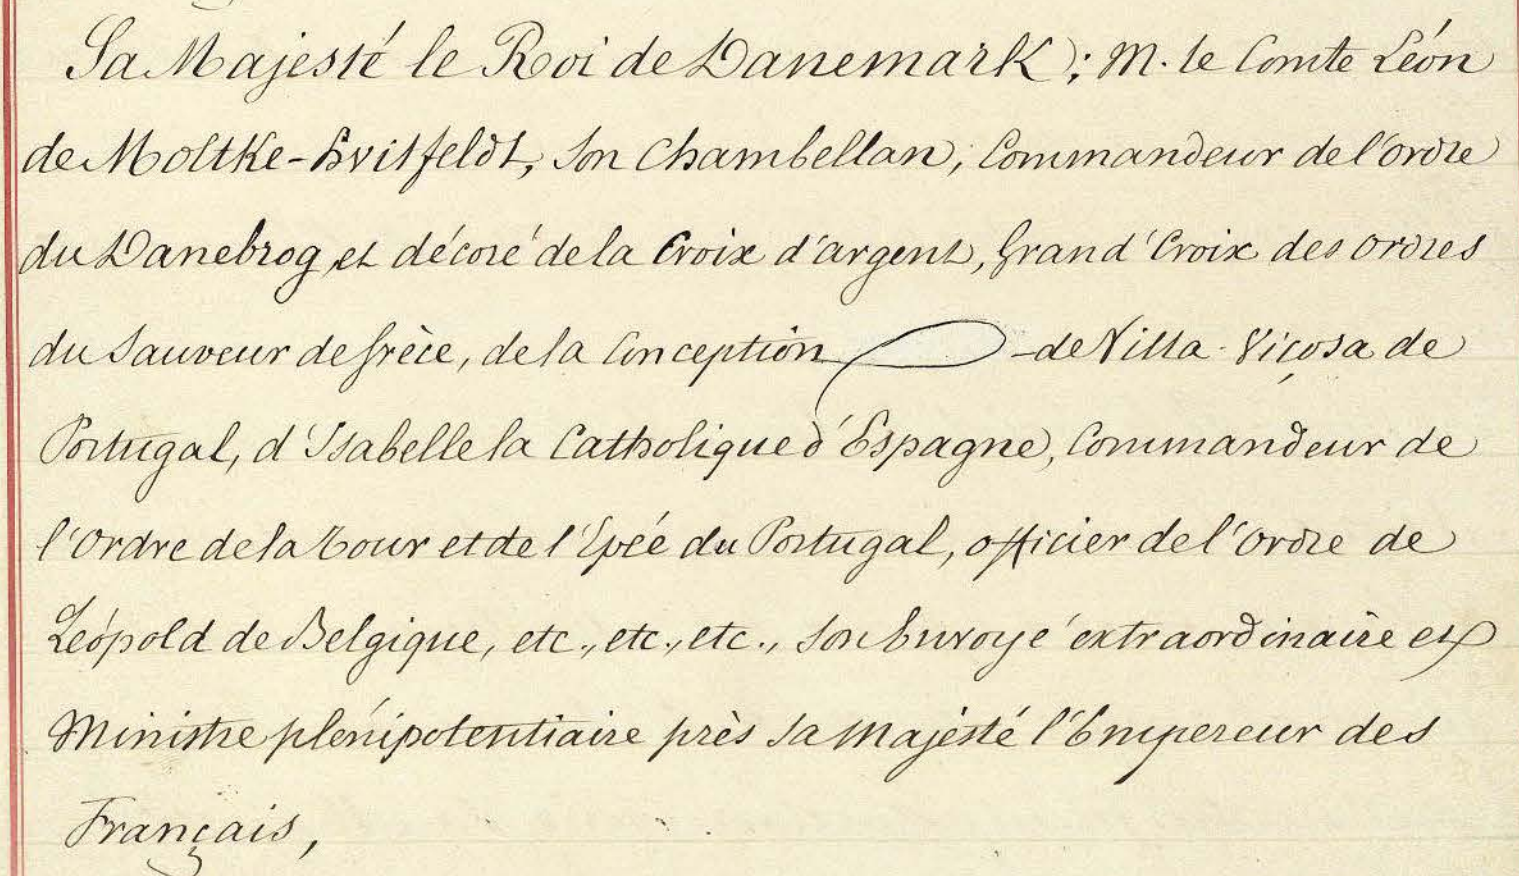 Sa Majesté le Roi de Danemark; M. le Comte Léon
de Moltke-Hvitfeldt, Son Chambellan, Commandeur de l'ordre
du Danebrog et décoré de la Croix d'argent, Grand' Croix des ordres
du Sauveur de Grèce, de la Conception de Villa-Viçosa de
Portugal, d'Isabelle la Catholique d'Espagne, Commandeur de
l'Ordre de la Tour et de l'Epée du Portugal, officier de l'ordre de
Léopold de Belgique, etc., etc., etc., Son Envoyé extraordinaire et
Ministre plénipotentiaire près Sa Majesté l'Empereur des
Français,